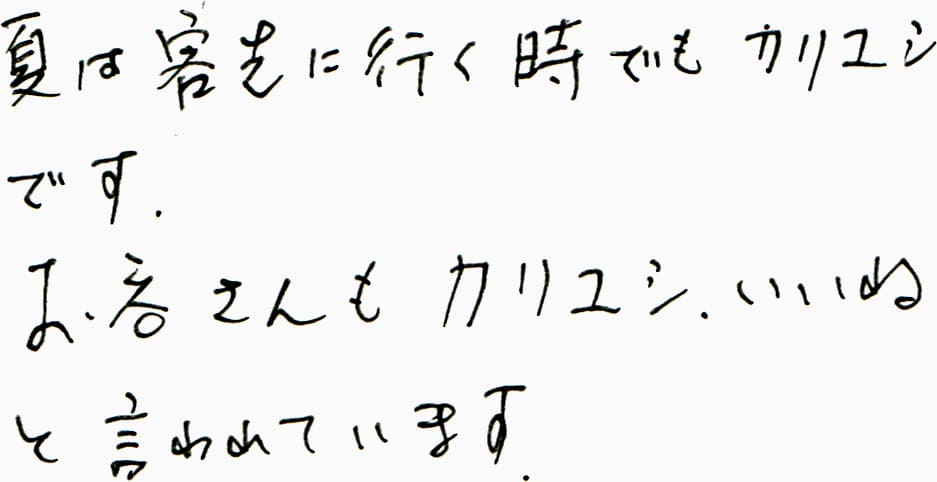 夏は客先に行く時でもカリユシ
です.
お客さんもカリユシ.いいね
と言われています.